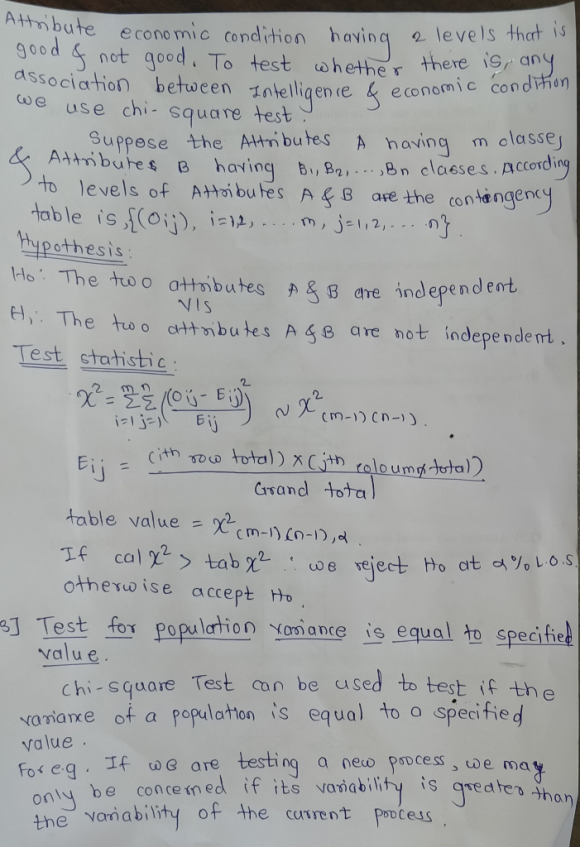 Attribute economic condition having 2 levels that is
good & not good. To test whether there is any
association between Intelligence & economic condition
we use chi-square test.
Suppose the Attributes A having m classes
& Attributes B having B1, B2, ..., Bn classes. According
to levels of Attributes A & B are the contengency
table is, {(Oij), i=1,2, .... m, j=1,2, ... n}.
Hypothesis:
H0: The two attributes A & B are independent
V/S
H1: The two attributes A & B are not independent.
Test statistic:
χ² = Σ(i=1 to m) Σ(j=1 to n) ((Oij - Eij)² / Eij) ~ χ²(m-1)(n-1).
Eij = (ith row total) x (jth coloum total) / Grand total
table value = χ²(m-1)(n-1),α.
If cal χ² > tab χ² ∴ we reject Ho at α% L.O.S.
otherwise accept Ho.
3] Test for population variance is equal to specified
value.
chi-square Test can be used to test if the
variance of a population is equal to a specified
value.
For e.g. If we are testing a new process, we may
only be concerned if its variability is greater than
the variability of the current process.